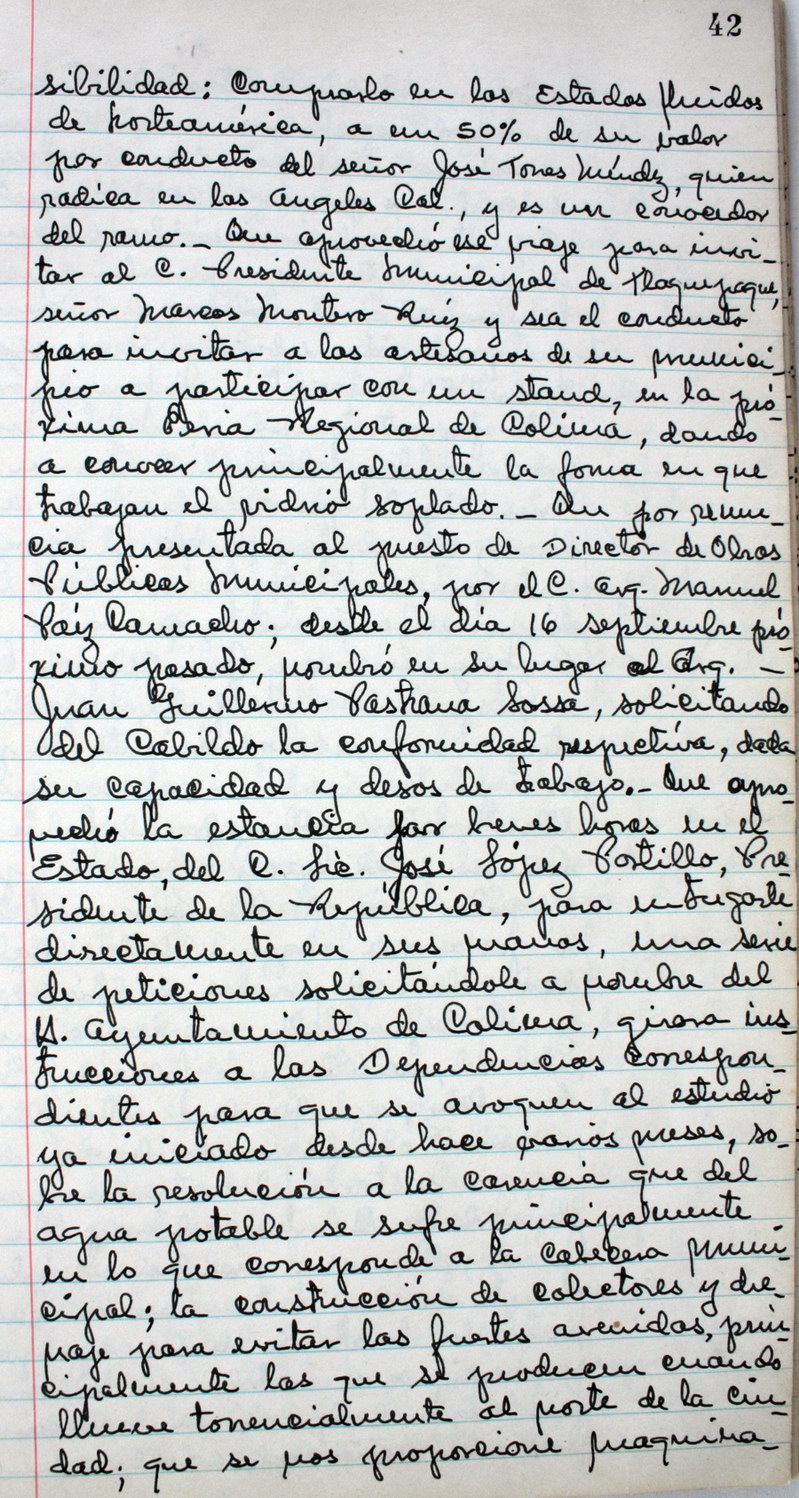 42
sibilidad: Comprarlo en los Estados Unidos
de Norteamérica, a un 50% de su valor
por conducto del señor José Torres Méndez, quien
radica en los Angeles Cal., y es un conocedor
del ramo._ Que aprovechó ese viaje para invi_
tar al C. Presidente Municipal de Tlaquepaque,
señor Marcos Montero Ruíz y sea el conducto
para invitar a los artesanos de su munici_
pio a participar con un stand, en la pró_
xima Feria Regional de Colima, dando
a conocer principalmente la forma en que
trabajan el vidrio soplado._ Que por renun_
cia presentada al puesto de Director de Obras
Públicas Municipales, por el C. Arq. Manuel
Paíz Camacho; desde el día 16 septiembre pró
ximo pasado, nombró en su lugar al Arq. _
Juan Guillermo Pastrana Sossa, solicitando
del Cabildo la conformidad respectiva, dada
su capacidad y desos de trabajo._ Que apro_
vechó la estancia por breves horas en el
Estado, del C. Lic. José López Portillo, Pre_
sidente de la República, para entregarle
directamente en sus manos, una serie
de peticiones solicitándole a nombre del
H. Ayuntamiento de Colima, girara ins_
trucciones a las Dependencias correspon_
dientes para que se avoquen al estudio
ya iniciado desde hace varios meses, so_
bre la resolución a la carencia que del
agua potable se sufre principalmente
en lo que corresponde a la cabecera muni_
cipal; la construcción de colectores y dre_
naje para evitar las fuertes avenidas, prin_
cipalmente las que se producen cuando
llueve torrencialmente al norte de la ciu_
dad; que se nos proporcione maquina_